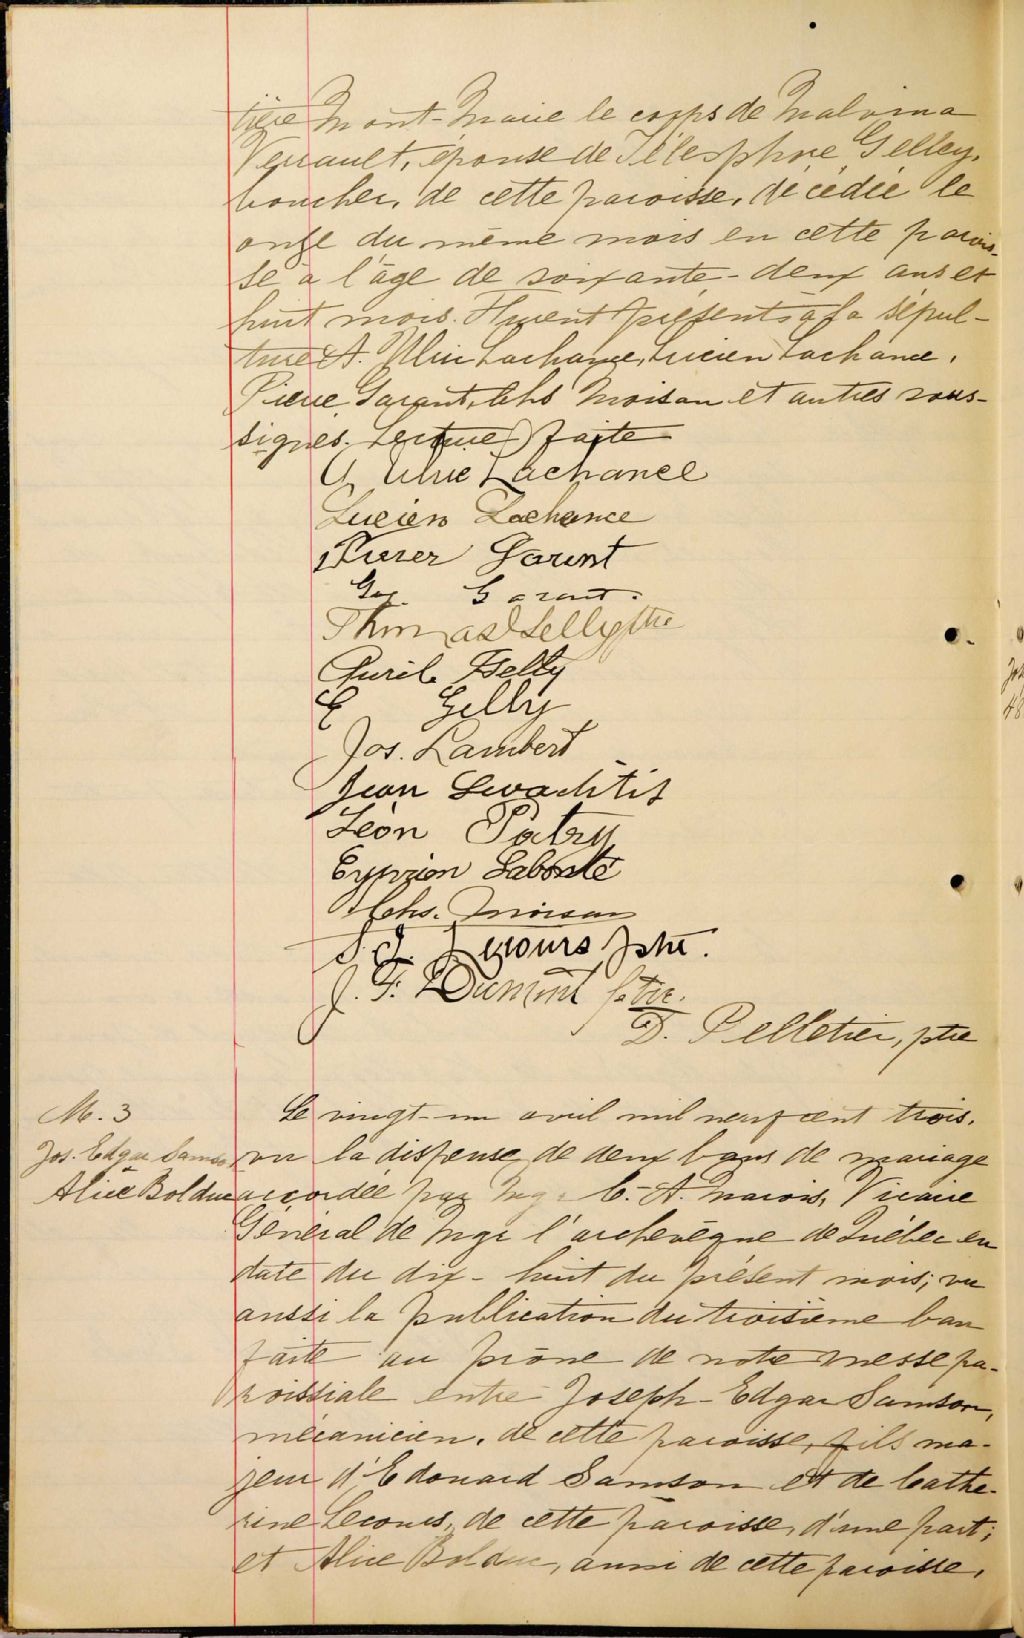 tière Mont-Marie le corps de Malvina
Verrault, épouse de Télesphore Gelley,
boucher, de cette paroisse, décédée le
onze du même mois en cette parois-
se à l'âge de soixante-deux ans et
huit mois. Furent présents à la sépul-
ture A. Ulric Lachance, Lucien Lachance,
Pierre Garant, Chs Moisan et autres sous-
signés. Lecture faite
A. Ulric Lachance
Lucien Lachance
Pierre Garant
Geo. Garant.
Thomas Gelly ptre
Auréle Gelly
E Gelly
Jos. Lambert
Jean
Léon Patry
Cyprien Labonté
Chs. Moisan
S. J. Lecours ptre.
J. F. Dumont ptre.
D. Pelletier, ptre
M. 3
Jos. Edgar Samson
Alice Bolduc
Le vingt-un avril mil neuf cent trois,
vu la dispense de deux bans de mariage
accordée par Mgr C.-A. Marois, Vicaire
Général de Mgr l'archevêque de Québec en
date du dix-huit du présent mois; vu
aussi la publication du troisième ban
faite au prône de notre messe pa-
roissiale entre Joseph-Edgar Samson,
mécanicien, de cette paroisse, fils ma-
jeur d'Edouard Samson et de Cathe-
rine Lecours, de cette paroisse, d'une part;
et Alice Bolduc, aussi de cette paroisse,